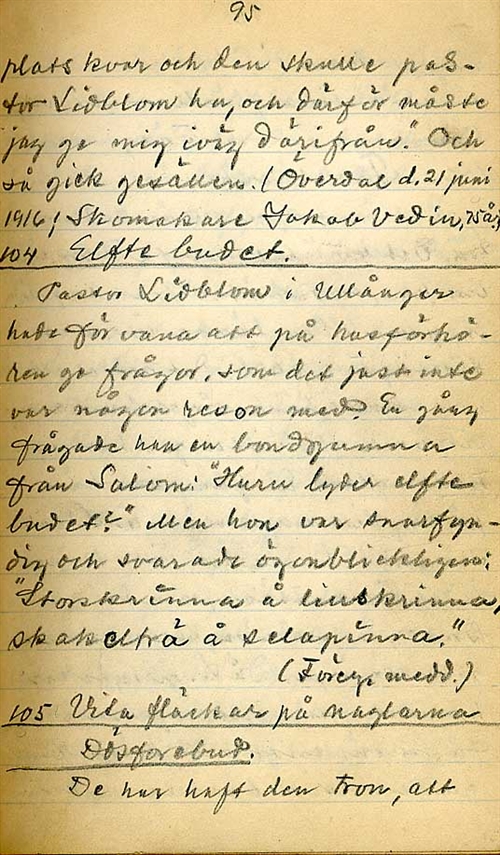 95
plats kvar och den skulle pas-
tor Lidblom ha, och därför måste
jag ge mig iväg därifrån." Och
så gick gesällen. (Överdal d. 21 juni
1916; Skomakare Jakob Vedin, 75 år.)
104 Elfte budet.
Pastor Lidblom i Ullånger
hade för vana att på husförhö-
ren ge frågor, som det just inte
var någon reson med. En gång
frågade han en bondgumma
från Salom: "Huru lyder elfte
budet?" Men hon var snarfyn-
dig och svarade ögonblickligen:
"Storskrinna å linskrinna,
skakelträ å selapinna."
(Föreg. medd.)
105 Vita fläckar på naglarna
Dödsförebud.
De har haft den tron, att